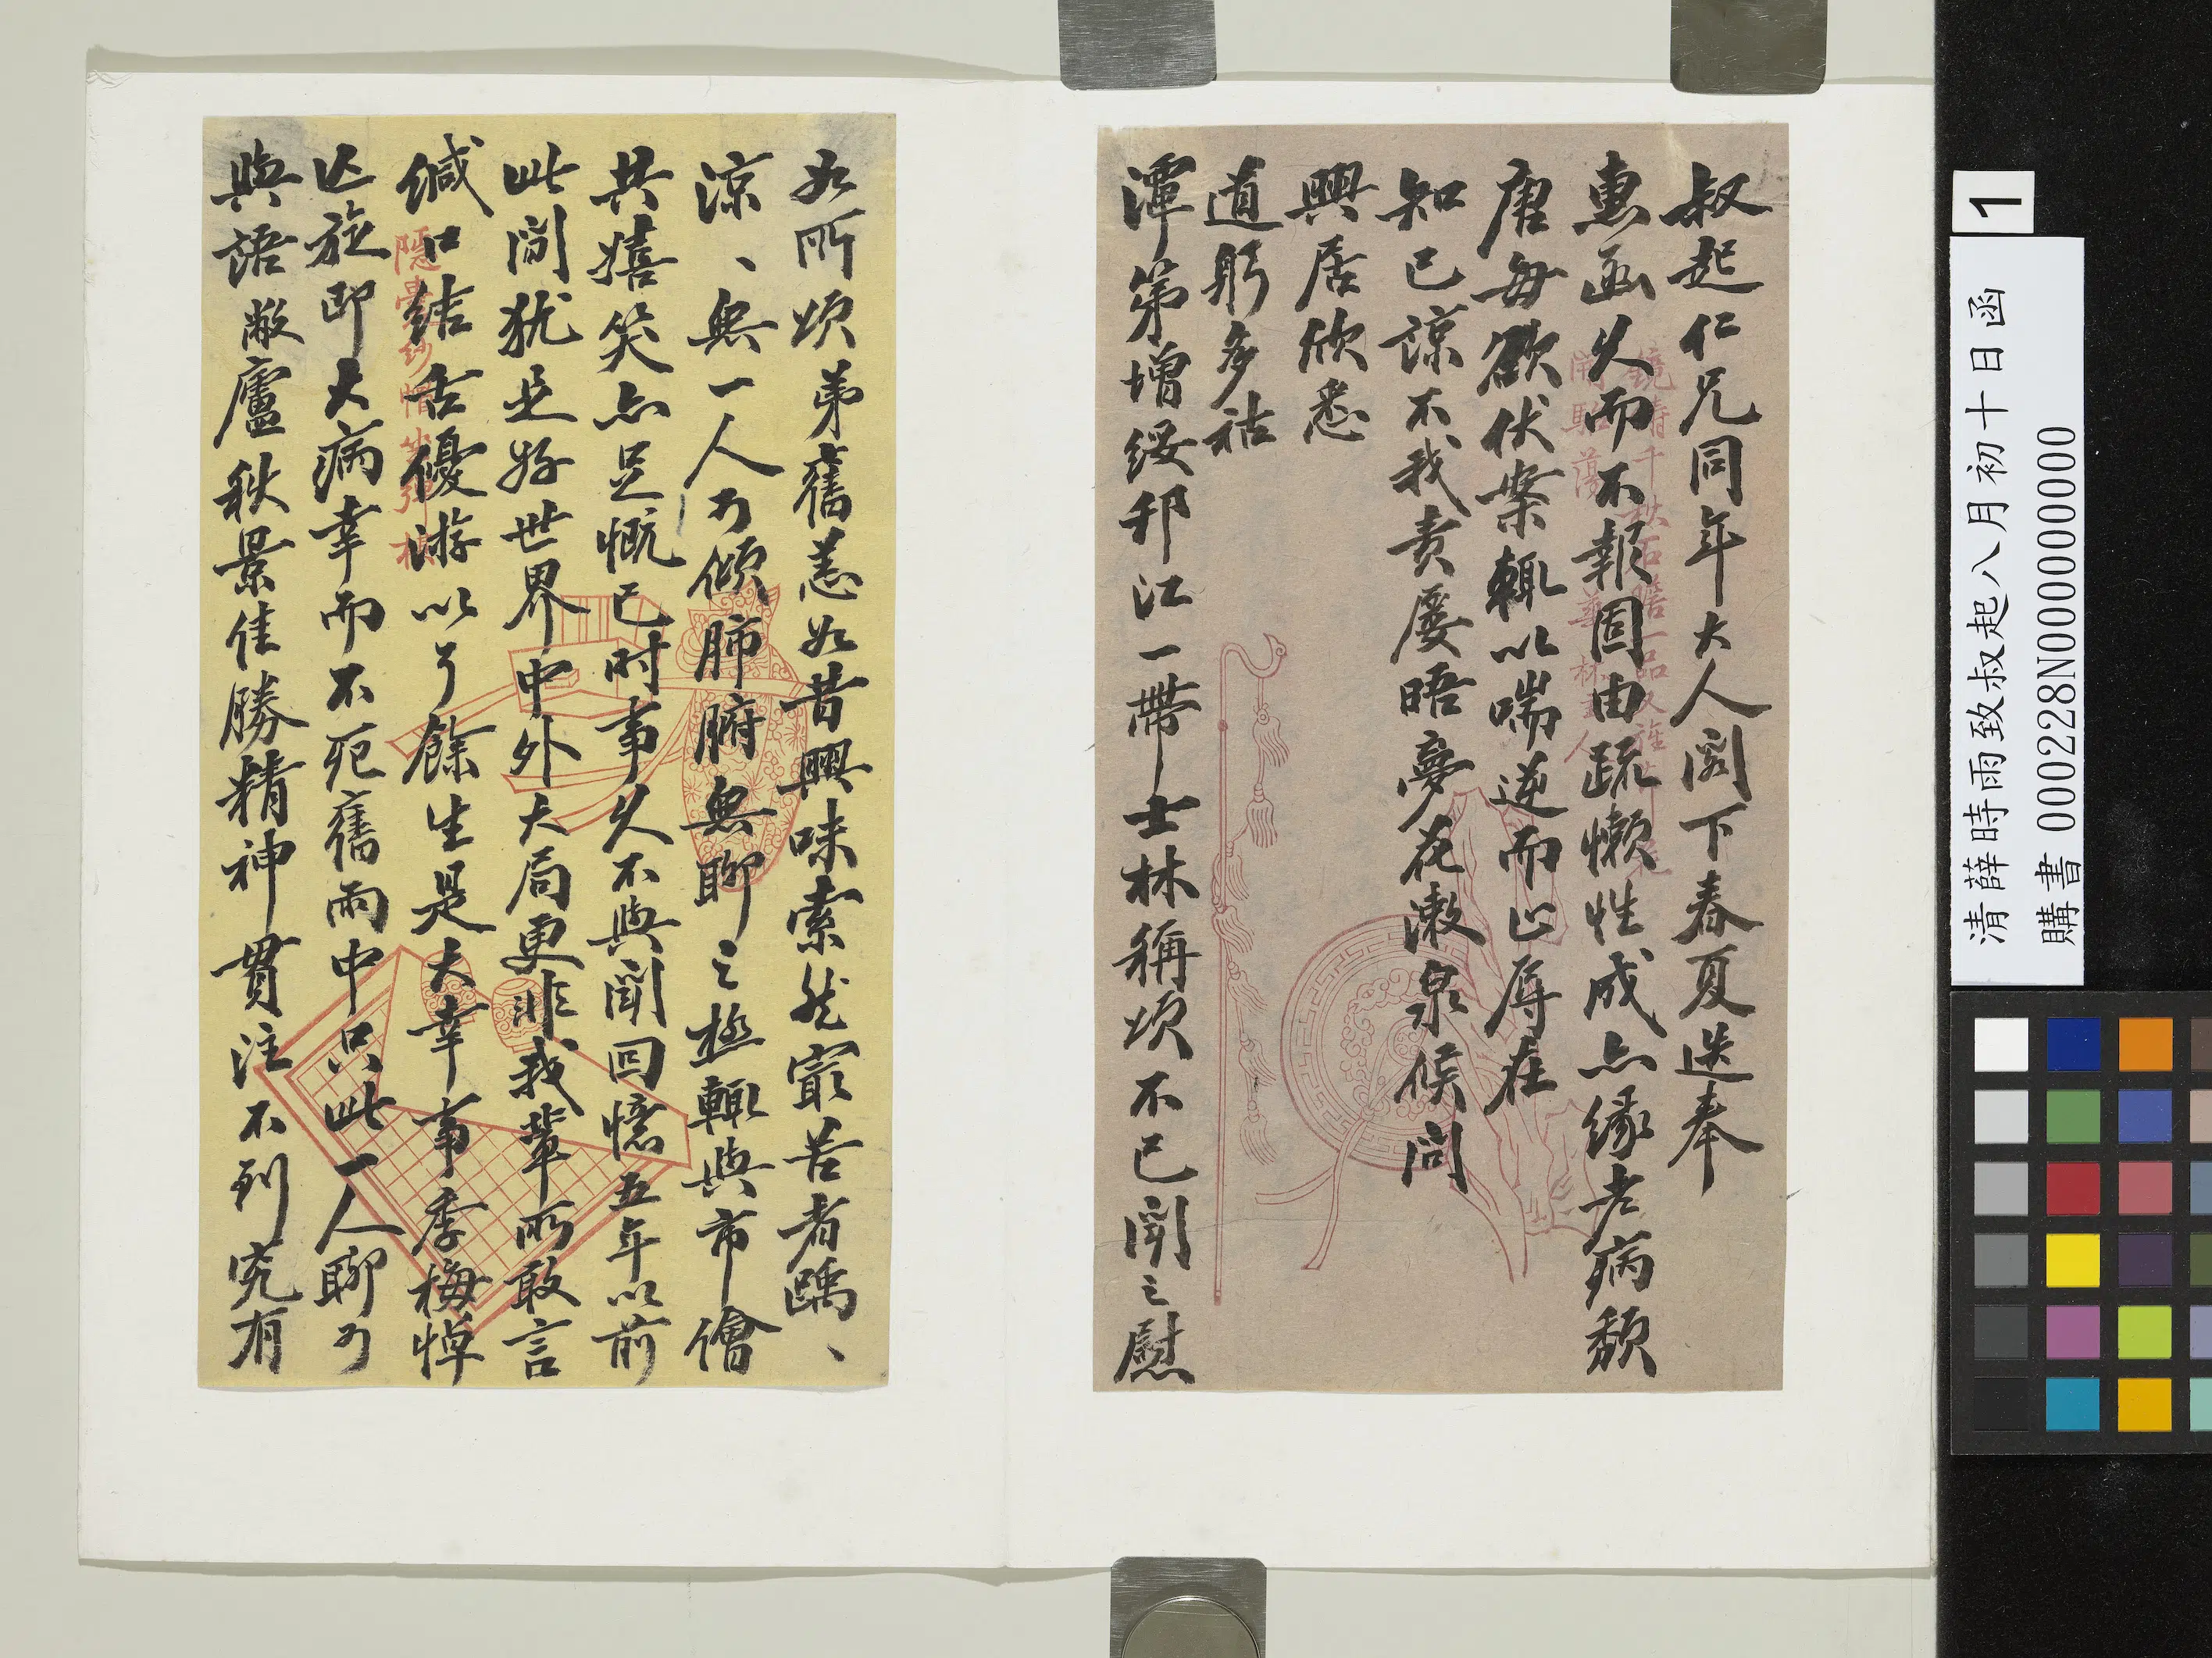 叔起仁兄同年大人閣下春夏迭奉
惠函久而不報固由疏懶性成亦緣老病頹
唐每欲伏案輒以喘逆而止辱在
知己諒不我責屢晤夢花漱泉候問
興居欣悉
道躬多祜
潭第增綏邗江一帶士林稱頌不已聞之慰
如所頌弟舊恙如昔興味索然寂苦者踽、
涼、無一人可傾肺腑無聊之極輒與市儈
共嬉笑亦足慨已時事久不與聞回憶五年以前
此間猶是好世界中外大局更非我輩所敢言
緘口結舌優游以了餘生是大幸事季梅悼
亡旋即大病幸而不死舊雨中只此一人聊可
與語敝廬秋景佳勝精神貫注不到究有
清薛時雨致叔起八月初十日函
購書 000228N000000000
1